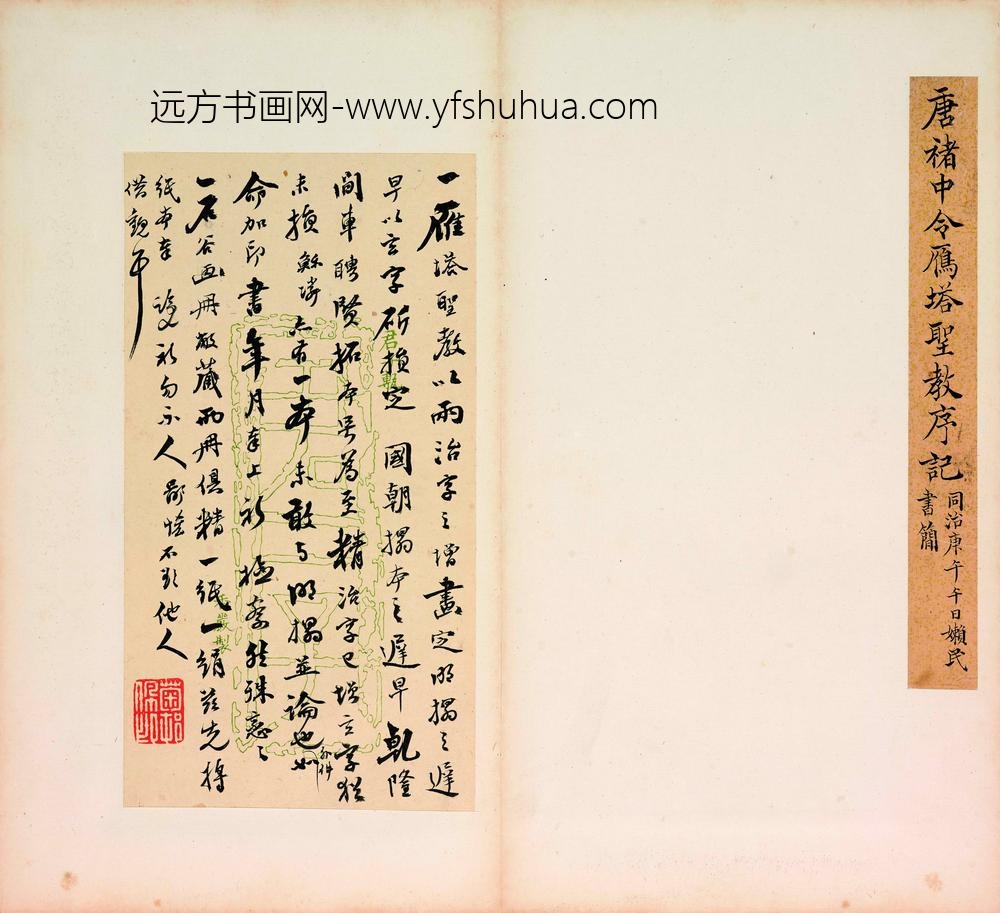 远方书画网-www.yfshuhua.com
唐褚中令鴈塔聖教序記
同治庚午午日嬾民
書簡
一雁塔聖教以兩治字之增畫定明搨之遲
早以玄字斫損定 國朝搨本之遲早乾隆
間車聘賢拓本号為至精治字已增玄字猶
未損 蘇鄰六有一本未敢与明搨並論也如
命加印書年月奉上祈
一石谷画冊敝藏兩冊俱精一紙一絹茲先將
紙本奉 祈勿示人
借觀